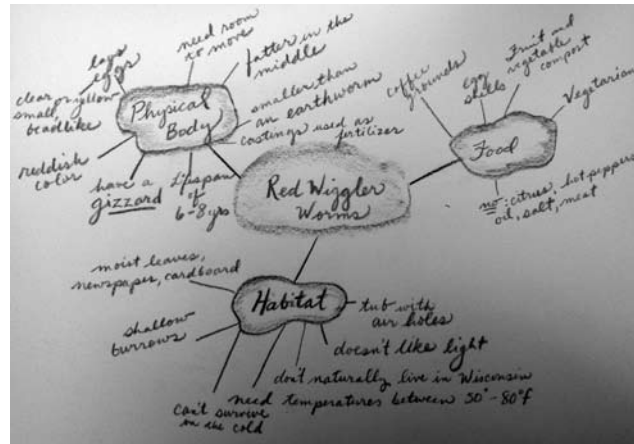 lays
eggs
clear or yellow
small,
beadlike
need room
to move
fatter in the
middle
Physical
Body
smaller than
an earthworm
castings used as
fertilizer
reddish
color
have a
gizzard
Lifespan
of
6-8 yrs
Red Wiggler
Worms
coffee
grounds
Egg
shells
Fruit and
vegetable
compost
Vegetarian
Food
no: citrus, hot peppers
oil, salt, meat
moist leaves,
newspaper, cardboard
Habitat
shallow
burrows
tub with
air holes
doesn't like light
don't naturally live in Wisconsin
need temperatures between 50°-80°f
can't survive
in the cold